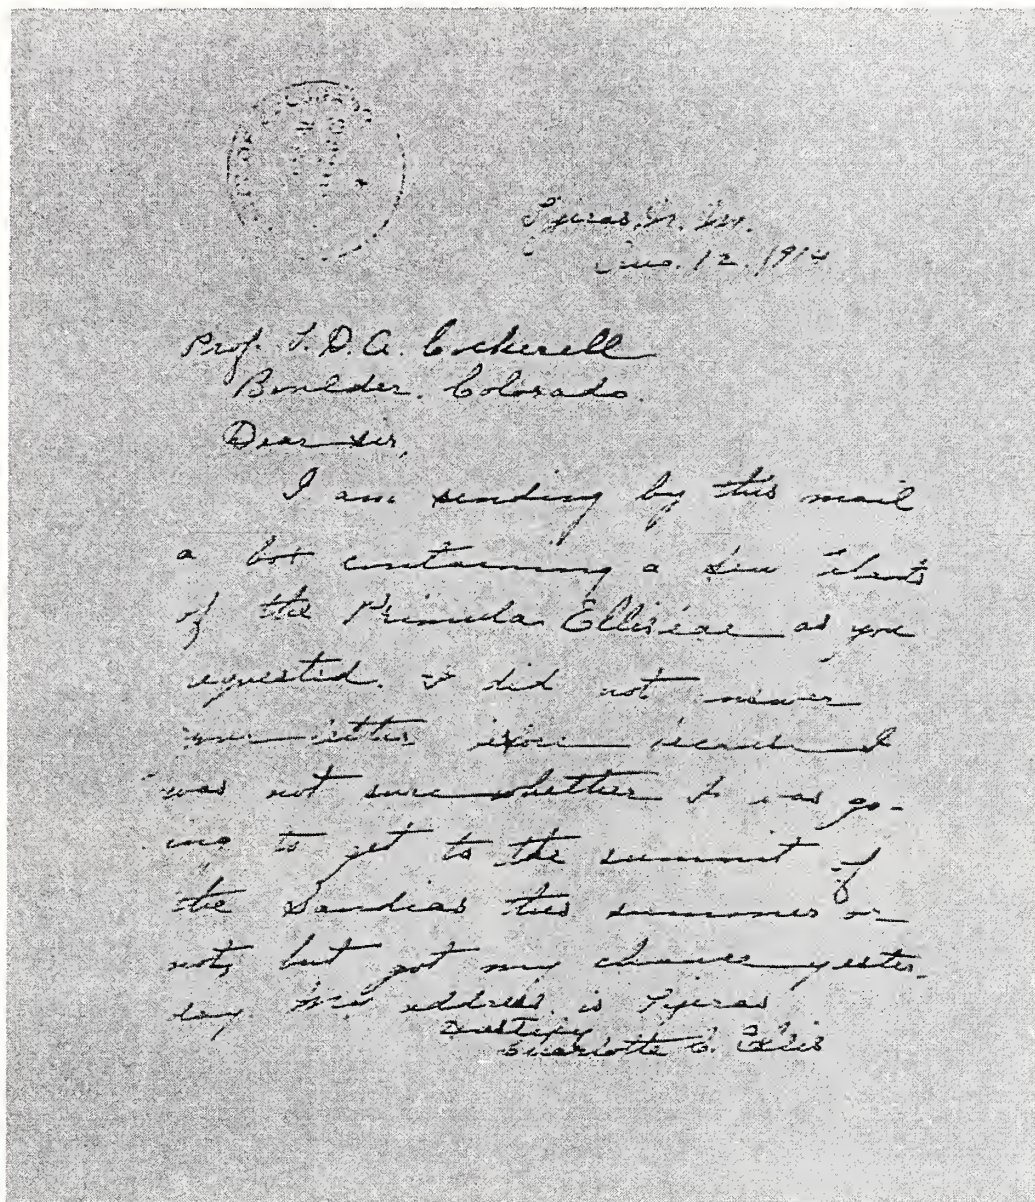 Tijeras, N. M.
Aug. 12, 1914
Prof. T. D. A. Cockerell
Boulder, Colorado.
Dear Sir,
I am sending by this mail
a box containing a few plants
of the Primula Ellisiae as you
requested. I did not answer
your letter before because I
was not sure whether I was go-
ing to get to the summit of
the Sandias this summer or
not, but got my chance yester-
day. My address is Tijeras
Charlotte C. Ellis